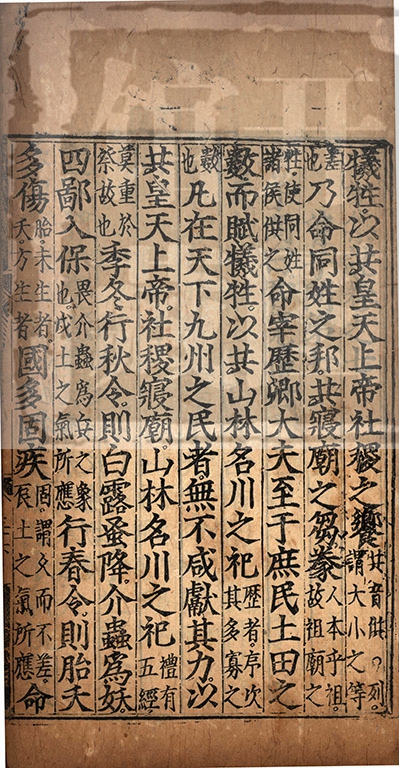 犧牲。以共皇天上帝社稷之饗共音供。列。謂大小之等
差也乃命同姓之邦。共寢廟之芻豢人本乎祖。故祖廟之
牲使同姓諸侯供之命宰歷卿大夫至于庶民土田之
數而賦犧牲。以共山林名川之祀歷者。序次其多寡之
數也凡在天下九州之民者。無不咸獻其力。以
共皇天上帝。社稷寢廟。山林名川之祀禮有五經
莫重於祭故也季冬行秋令。則白露蚤降。介蟲爲妖。
四鄙入保畏介蟲爲兵之象也。戌土之氣所應行春令。則胎夭
多傷胎。未生者。夭。方生者國多固疾固。謂久而不差。辰土之氣所應命